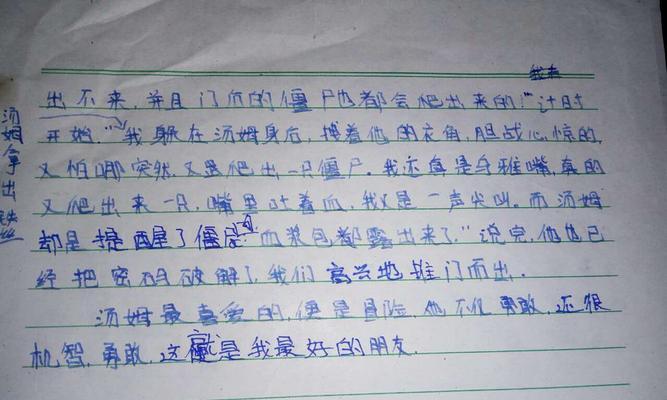 我在
出不来，并且门爪的僵尸也都会爬出来的！"计时
开始。"我躲在汤姆身后，搏着他的衣角，胆战心惊的，
又怕哪突然又是爬出一只僵尸。我还真是乌鸦嘴，真的
又爬出来一只，嘴里叶着爪，我又是一声尖叫。而汤姆
却是提醒了僵尸：血浆包都露出来了。"说完，他也已
经把密码破解了，我们高兴地推门而出。
汤姆最喜爱的，便是冒险，他不仅勇敢，还很
机智，勇敢，这就是我最好的朋友。
汤姆拿出